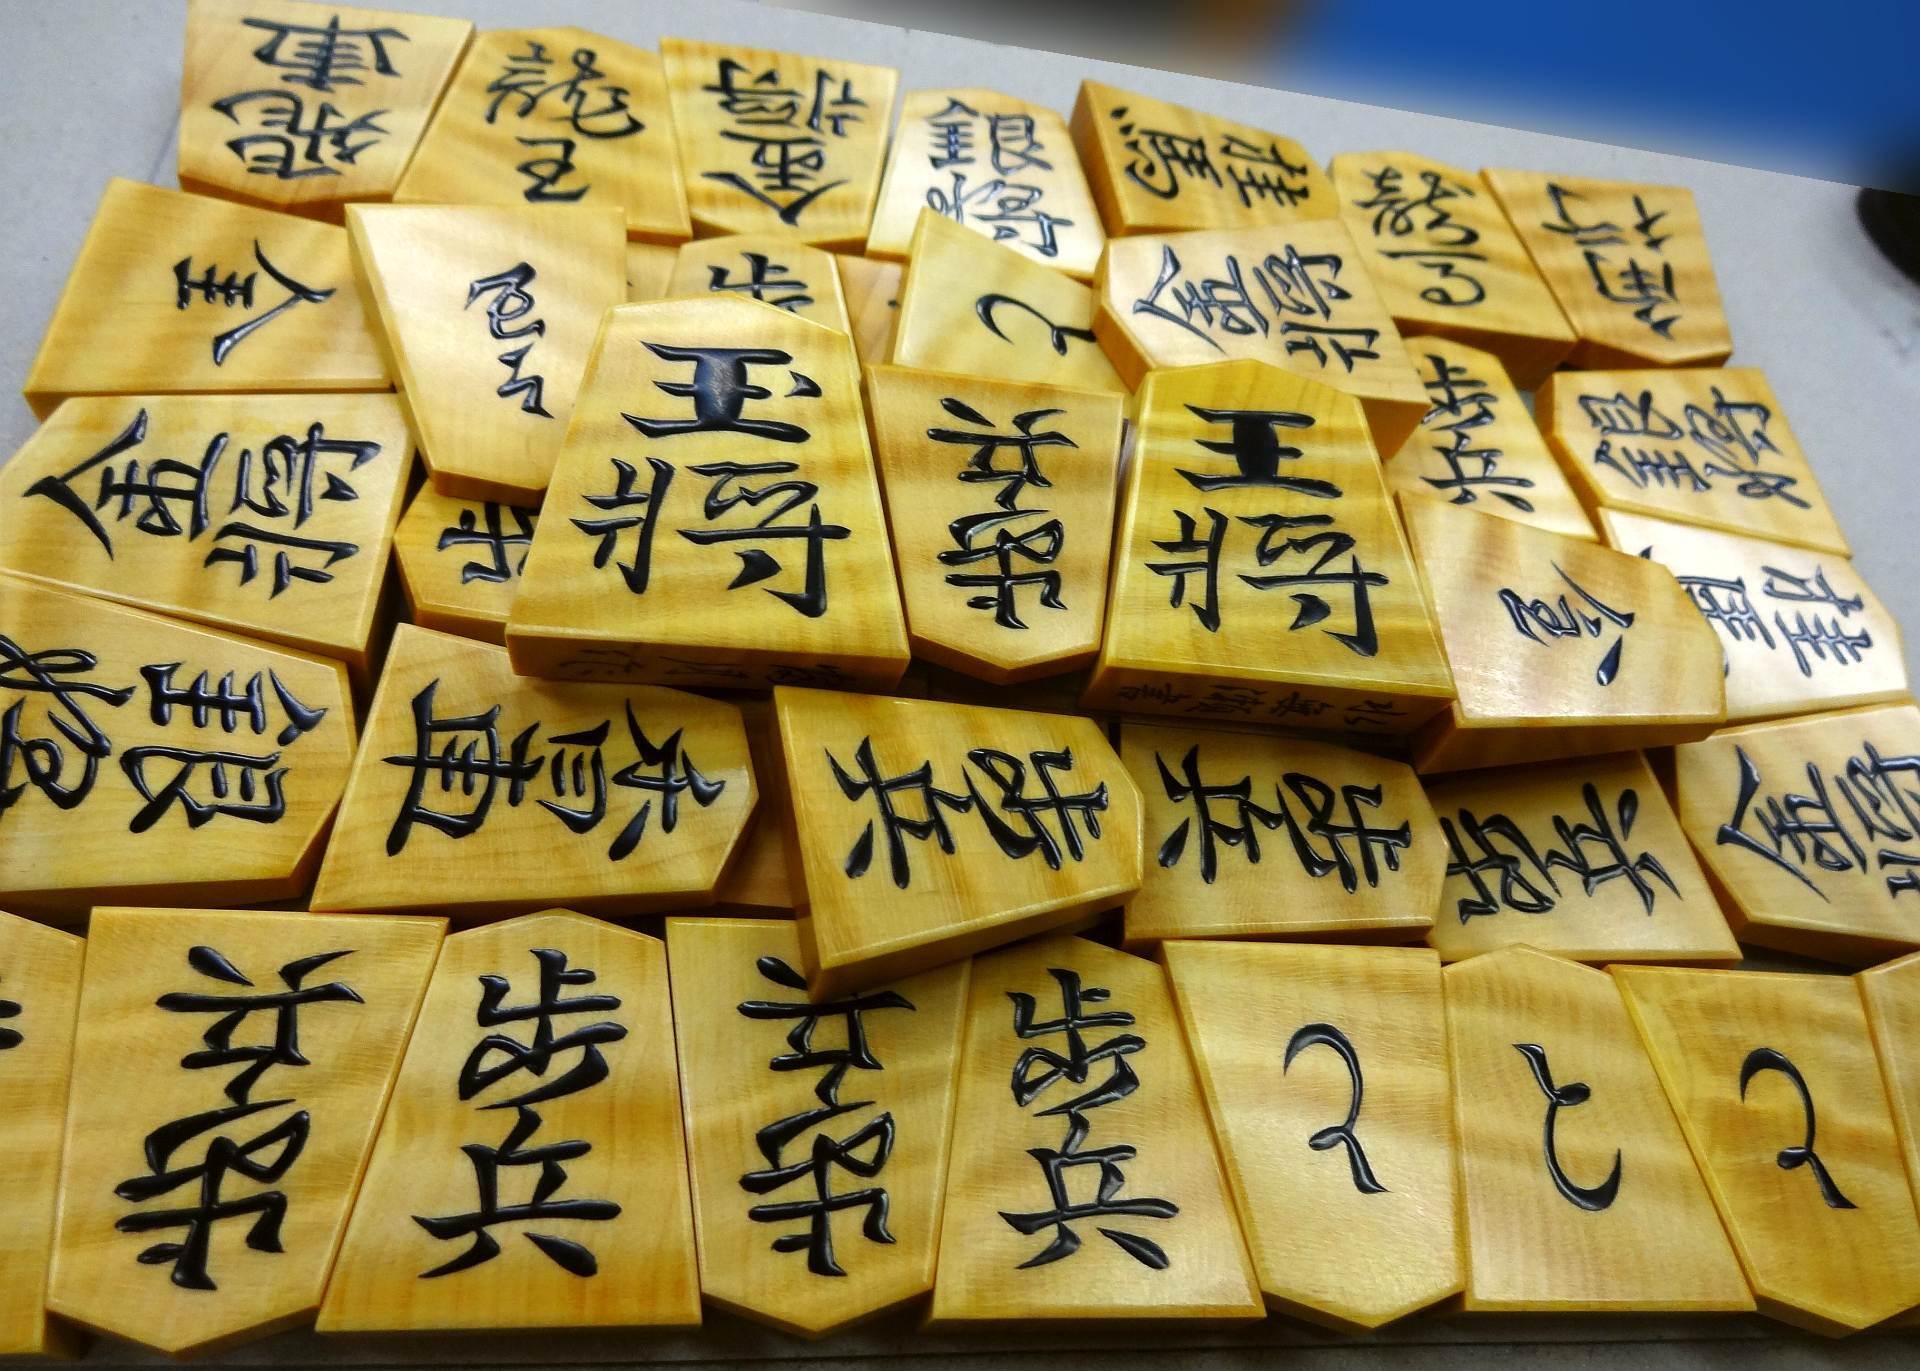 飛車
龍王
金将
銀将
桂馬
龍王
香車
全
と
歩
金将
金将
玉将
歩兵
王将
歩兵
銀将
桂馬
歩
銀将
香車
歩兵
歩兵
歩兵
金将
歩兵
歩兵
歩兵
歩兵
と
と
と